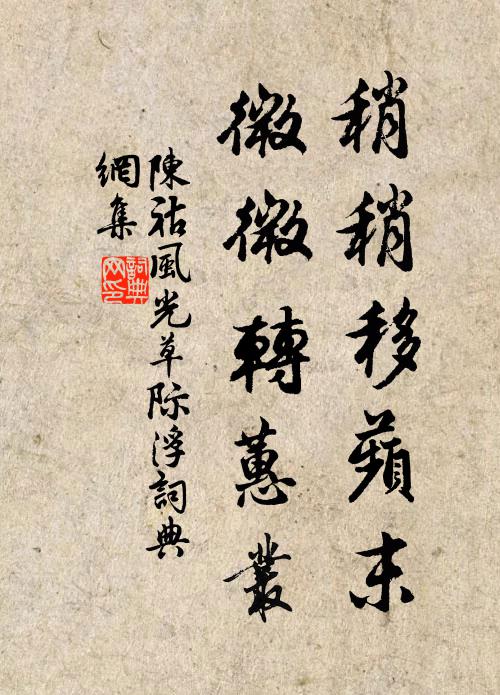 稍稍移蘋末
微微轉蕙叢
陳祜風光草際浮詞典
網集
詞典網印